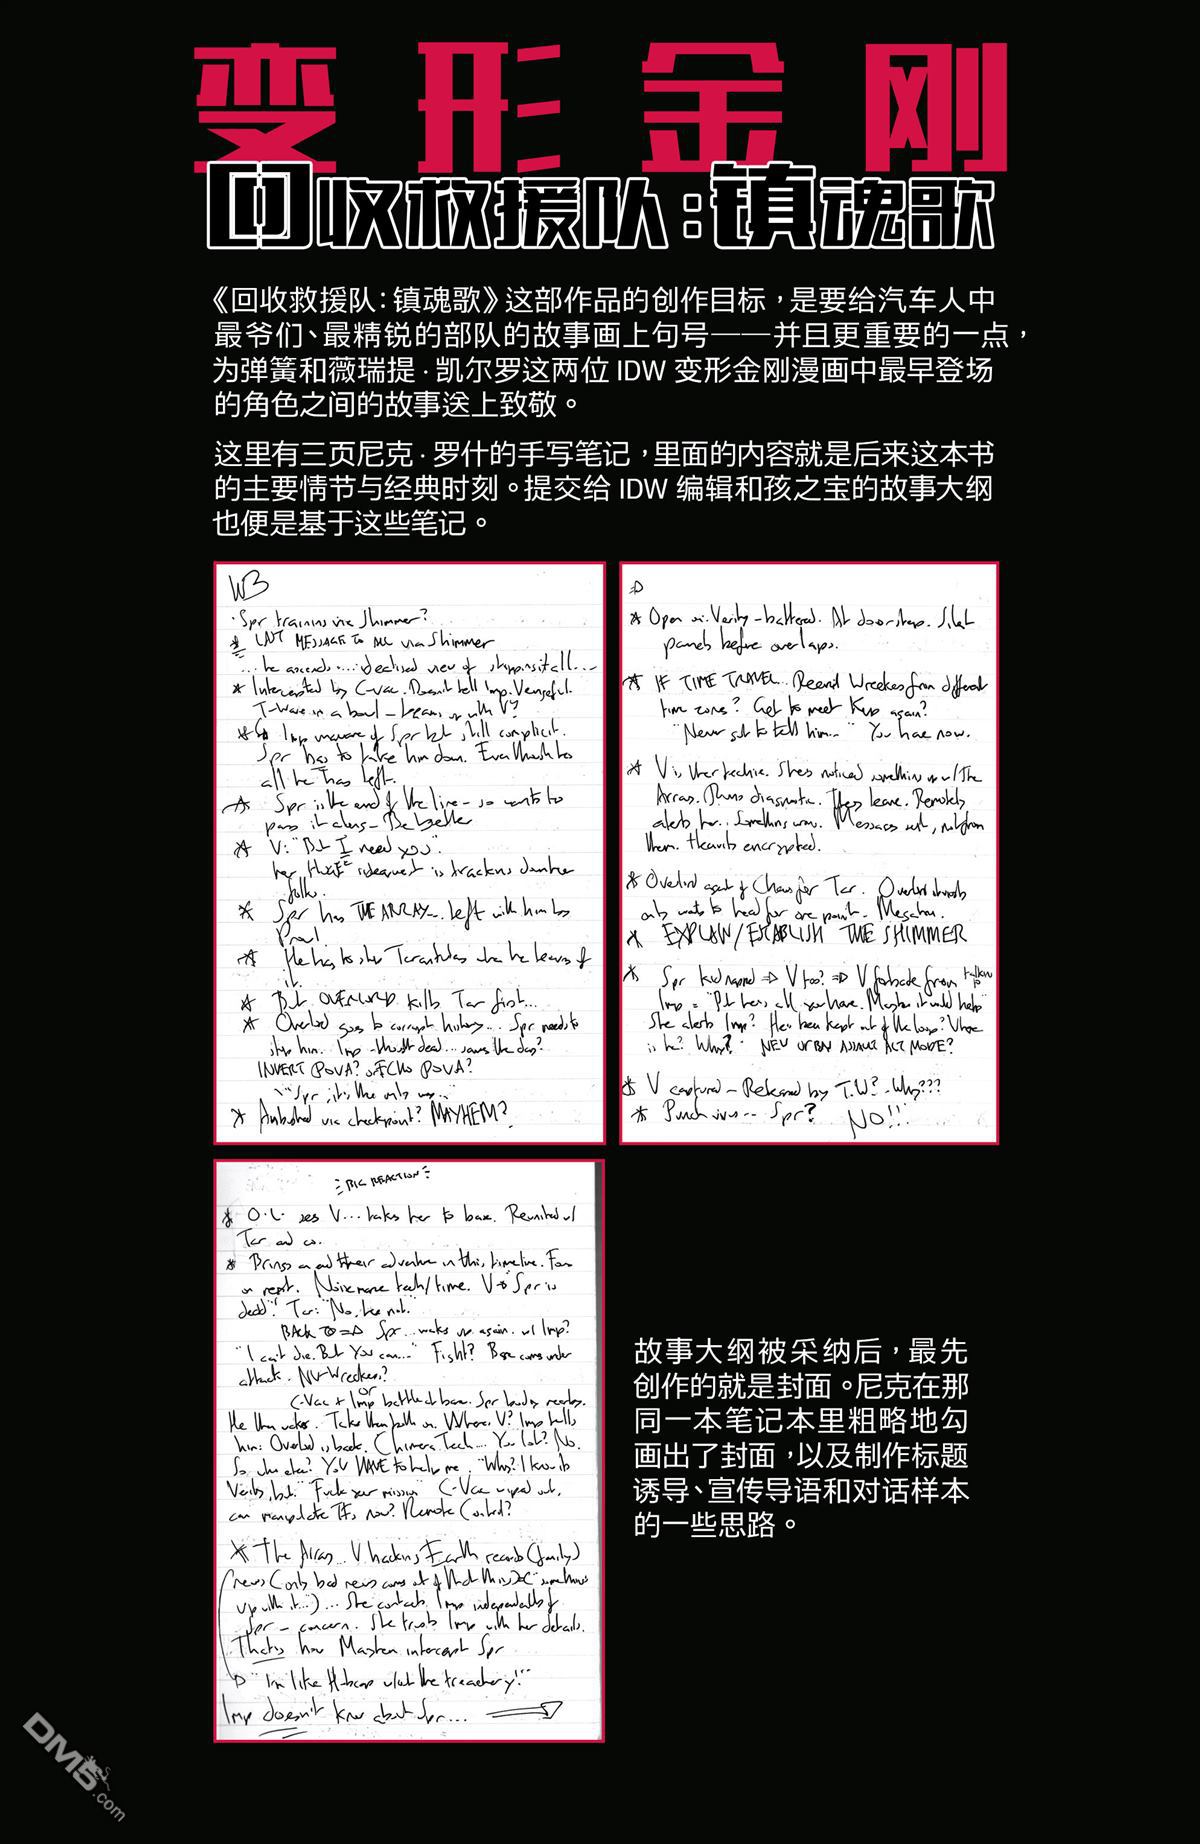 变形金刚
回收救援队:镇魂歌
《回收救援队:镇魂歌》这部作品的创作目标,是要给汽车人中
最爷们、最精锐的部队的故事画上句号——并且更重要的一点,
为弹簧和薇瑞提·凯尔罗这两位 IDW 变形金刚漫画中最早登场
的角色之间的故事送上致敬。
这里有三页尼克·罗什的手写笔记,里面的内容就是后来这本书
的主要情节与经典时刻。提交给 IDW 编辑和孩之宝的故事大纲
也便是基于这些笔记。
·Spr training via Shimmer?
LAST MESSAGE TO ALL via Shimmer
...he ascends....
* Intercepted by C-vac. Doesn't tell Imp. Vengeful.
Imp unaware of Spr but still complicit.
Spr has to take him down. Even though he's
all he has left.
Spr is the end of the line - so wants to
pass it along - Be better
* V: "But I need you".
her HUGE sidequest is tracking down her
folks.
* Spr has THE ARRAY... left with him by
Prowl.
* He has to stop Tarantulas when he learns of
it.
* But OVERLORD kills Tar first...
* Overlord goes to corrupt history... Spr needs to
stop him. Imp - thought dead... saves the day?
INVERT POVA? or ECHO POVA?
"Spr, it's the only way..."
* Ambushed via checkpoint? MAYHEM?
* Open w. Verity - battered. At doorstep. Silent
panels before overlaps.
* IF TIME TRAVEL... Recruit Wreckers from different
time zones? Get to meet Kup again?
"Never got to tell him..." You have now.
* V is their techie. She's noticed something up w/ The
Array. Runs diagnostic. They leave. Remotely
alerts her... Something wrong. Messages sent, not from
them. Heavily encrypted.
* Overlord agent of Chaos for Tar. Overlord
only wants to head for one point - Megatron.
* EXPLAIN/ESTABLISH THE SHIMMER
* Spr kidnapped ⇒ V too? ⇒ V forbade from talking to
Imp = "But he's all you have. Maybe it would help"
She alerts Imp? He's been kept out of the loop? Where
is he? Why? NEW URBAN ASSAULT ALT MODE?
* V captured - Released by T.W? - Why???
* Punch ... Spr? NO!!!
BIG REACTION
* O.L. sees V... takes her to base. Reunited w/
Tar and co.
* Brings an end to their adventure in this timeline. Focus
on regret. Noisemaze tech/time. V → "Spr is
dead". Tar: "No, he's not."
BACK TO ⇒ Spr... wakes up again. w/ Imp?
"I can't die. But You can..." Fight? Base comes under
attack. NU-Wreckers?
or
C-Vac + Imp battle at base. Spr laid up nearby.
He then wakes. Takes them both on. Where's V? Imp tells
him: Overlord is back. Chimera Tech... You lot? No.
So who else? YOU HAVE to help me. "Why? I know it's
Verity, but" "Fuck your mission" C-Vac wiped out,
can manipulate TFs now? Remote Control?
* The Array... V hacking Earth records (family)
news (only bad news comes out of that thing) ("something's
up with it...")... She contacts Imp independently of
Spr - concern. She trusts Imp with her details.
That's how Mayhem intercept Spr
"I'm like H-bomp w/out the treachery!"
Imp doesn't know about Spr...
故事大纲被采纳后,最先
创作的就是封面。尼克在那
同一本笔记本里粗略地勾
画出了封面,以及制作标题
诱导、宣传导语和对话样本
的一些思路。
DM5.com